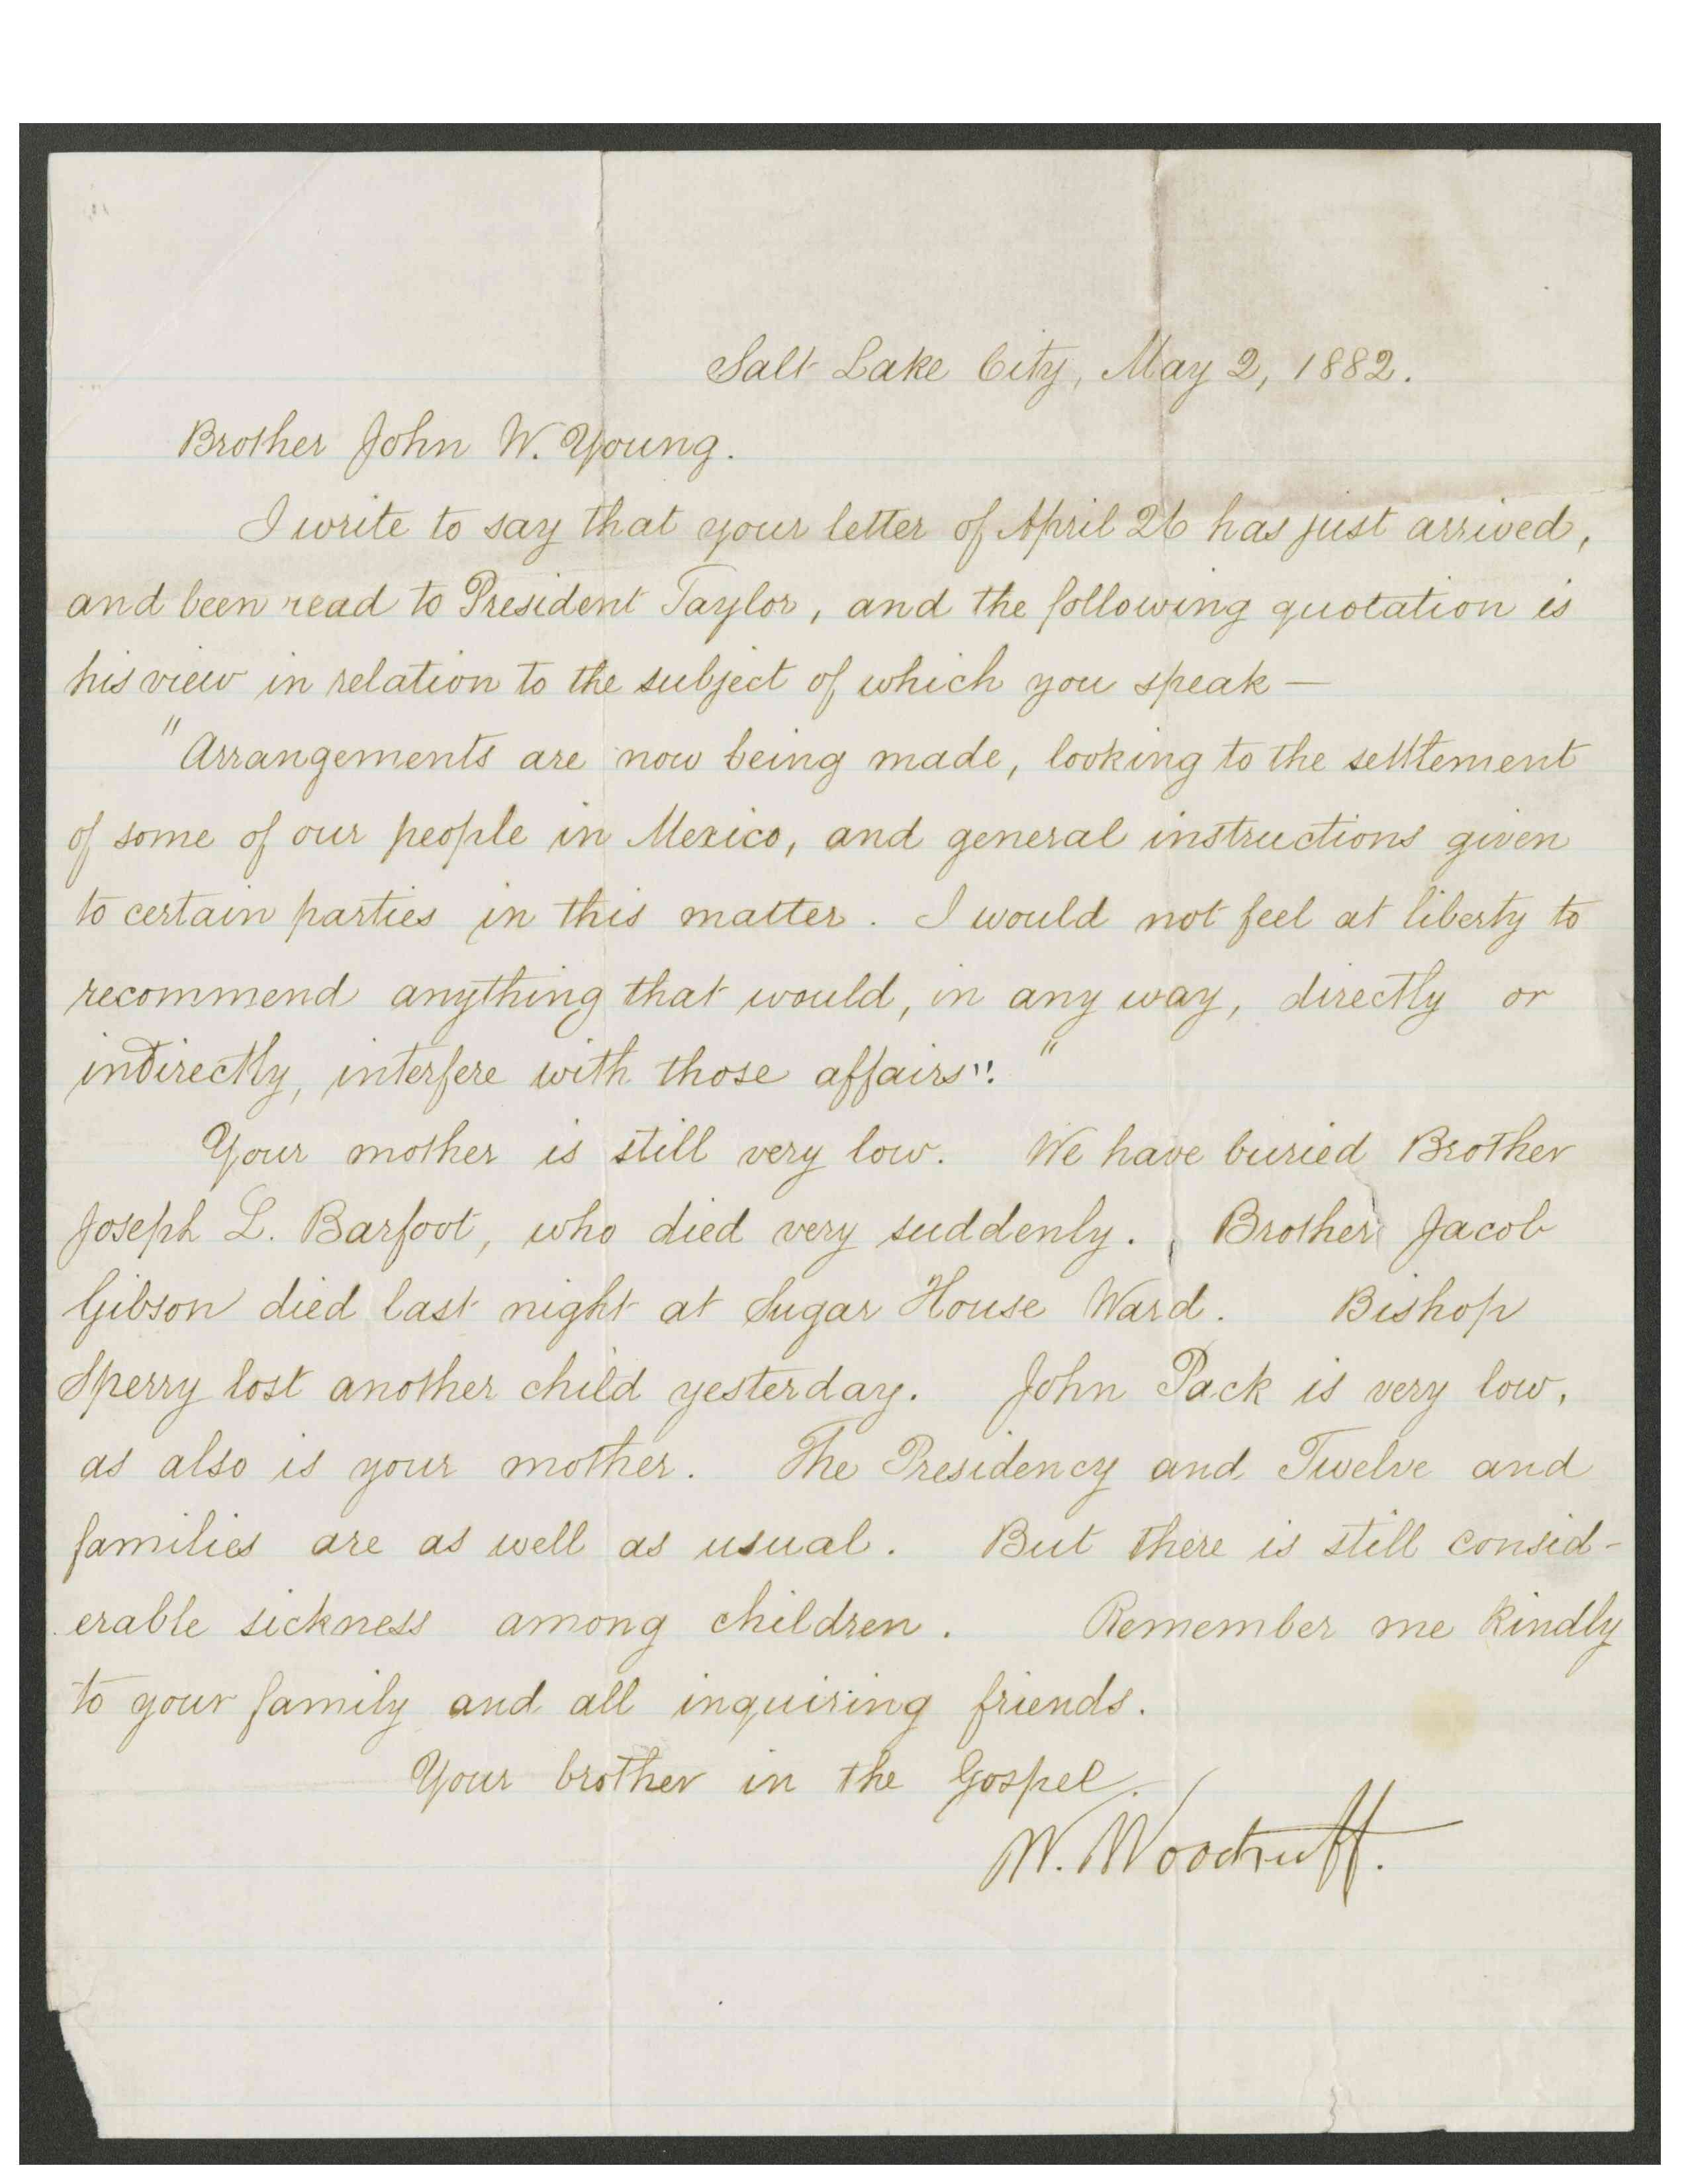 Salt Lake City, May 2, 1882.
Brother John W. Young.
I write to say that your letter of April 26 has just arrived,
and been read to President Taylor, and the following quotation is
his view in relation to the subject of which you speak —
"Arrangements are now being made, looking to the settlement
of some of our people in Mexico, and general instructions given
to certain parties in this matter. I would not feel at liberty to
recommend anything that would, in any way, directly or
indirectly, interfere with those affairs". "
Your mother is still very low. We have buried Brother
Joseph L. Barfoot, who died very suddenly. Brother Jacob
Gibson died last night at Sugar House Ward. Bishop
Sperry lost another child yesterday. John Pack is very low,
as also is your mother. The Presidency and Twelve and
families are as well as usual. But there is still consid-
erable sickness among children. Remember me kindly
to your family and all inquiring friends.
Your brother in the Gospel.
W. Woodruff.